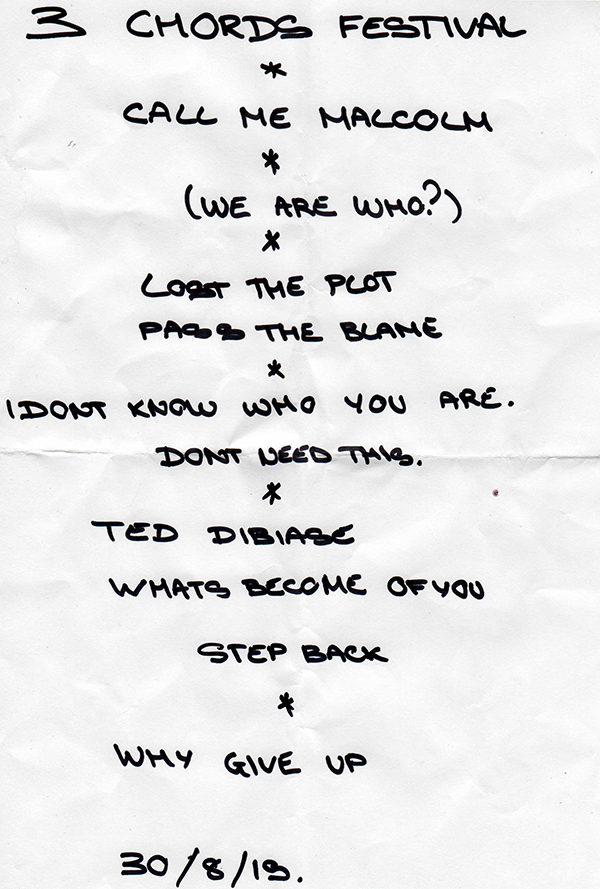 3 CHORDS FESTIVAL
*
CALL ME MALCOLM
*
(WE ARE WHO?)
*
LOST THE PLOT
PASS THE BLAME
*
I DONT KNOW WHO YOU ARE.
DONT NEED THIS.
*
TED DIBIASE
WHATS BECOME OF YOU
STEP BACK
*
WHY GIVE UP
30/8/19.